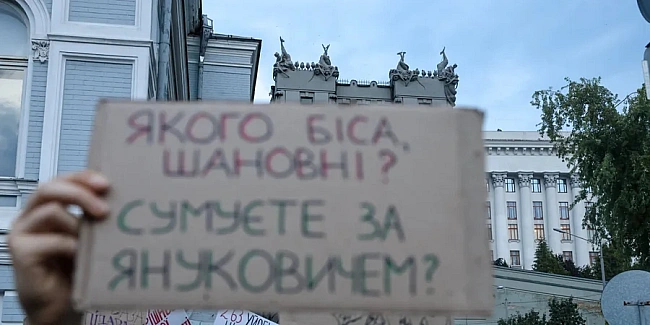 ЯКОГО БІСА,
ШАНОВНІ?
СУМУЄТЕ ЗА
ЯНУКОВИЧЕМ?